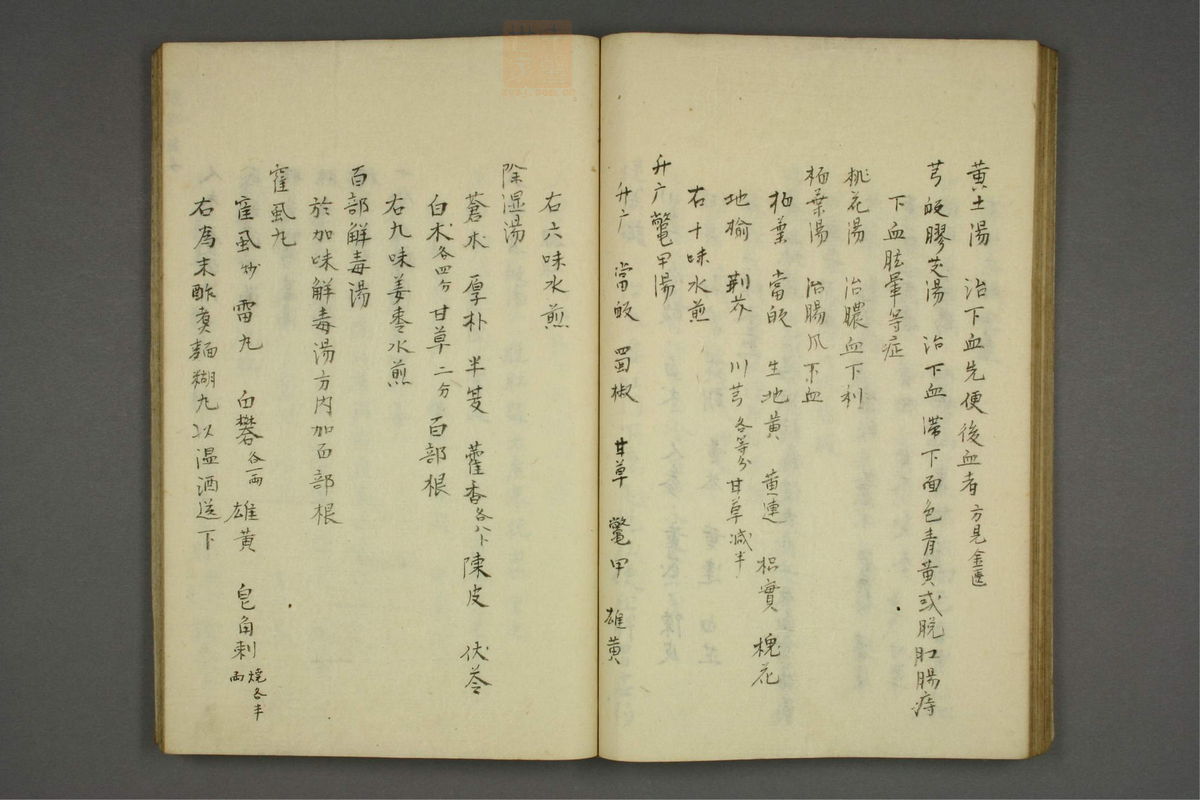 黄土湯 治下血先便後血者 方見金匱
芎皈膠艾湯 治下血滞下面色青黄或脱肛腸痔
下血眩暈等症
桃花湯 治膿血下利
栢葉湯 治腸風下血
栢葉 當皈 生地黄 黄連 枳實 槐花
地榆 荆芥 川芎各等分 甘草减半
右十味水煎
升广鼈甲湯
升广 當皈 蜀椒 甘草 鼈甲 雄黄
右六味水煎
除湿湯
蒼朮 厚朴 半夏 藿香各八卜 陳皮 伏苓
白朮各四分 甘草二分 百部根
右九味姜枣水煎
百部解毒湯
於加味解毒湯方内加百部根
寉虱九
寉虱炒 雷丸 白礬各一両 雄黄 皀角刺焼各半両
右為末酢煑麵糊丸以温酒送下